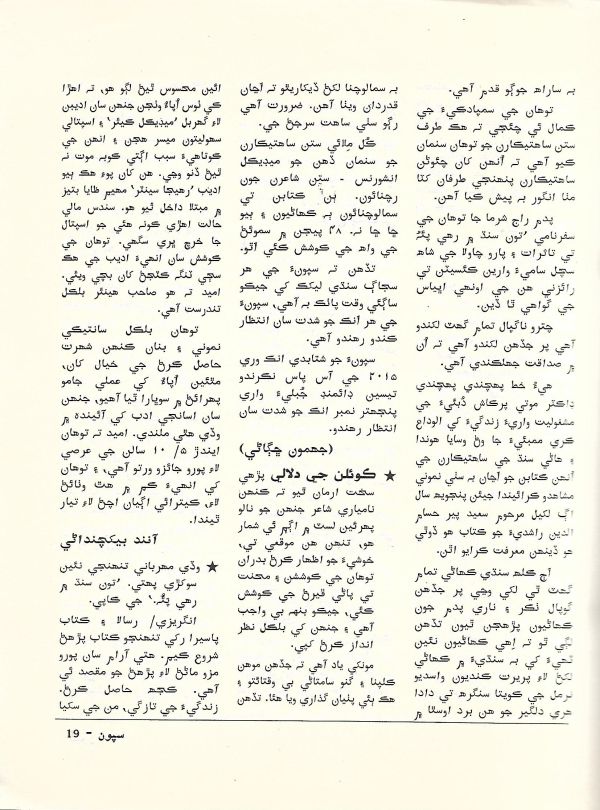 به ساراھ جوڳو قدم آهي.
توهان جي سمپادڪيءَ جي
ڪمال ئي چئجي ته هڪ طرف
ستن ساهتيڪارن جو توهان سنمان
ڪيو آهي ته اُنهن کان چڱوڻن
ساهتيڪارن پنهنجي طرفان کٽا
مٺا انگور به پيش ڪيا آهن.
پدم راڄ شرما جا توهان جي
سفرنامي ’تون سنڌ ۾ رهي پئڻ‘
تي تاثرات ۽ پارو چاولا جي شاھ
سچل ساميءَ وارين ڪئسيٽن تي
رائزني هن جي اونهي اڀياس
جي گواهي ٿا ڏين.
چترو ناگپال تمام گهٽ لکندو
آهي پر جڏهن لکندو آهي ته اُن
۾ صداقت جهلڪندي آهي.
هيءُ خط پهچندي پهچندي
ڊاڪٽر موتي پرڪاش دُبئيءَ جي
مشغوليت واريءَ زندگيءَ کي الوداع
ڪري ممبئيءَ جا وڻ وسايا هوندا
۽ هاڻي سنڌ جي ساهتيڪارن جي
اُنهن ڪتابن جو اڃان به سٺي نموني
مشاهدو ڪرائيندا جيئن پنجويھ سال
اڳ لکيل مرحوم سعيد پير حسام
الدين راشديءَ جو ڪتاب هو ڏوٿي
هو ڏينهن معرفت ڪرايو اٿن.
اڄ ڪلھ سنڌي ڪهاڻي تمام
گهٽ ٿي لکي وڃي پر جڏهن
گوپال ٺڪر ۽ ناري پدم جون
ڪهاڻيون پڙهجن ٿيون تڏهن
لڳي ٿو ته اِهي ڪهاڻيون نئين
ٽهيءَ کي به سنڌيءَ ۾ ڪهاڻي
لکڻ لاءِ پريرت ڪنديون واسديو
نرمل جي ڪويتا سنگرھ تي دادا
هري دلگير جو هن برد اوستا ۾
به سمالوچنا لکڻ ڏيکاريٿو ته اڃان
قدردان ويٺا آهن. ضرورت آهي
رڳو سٺي ساهت سرجڻ جي.
ڪُل ملائي ستن ساهتيڪارن
جو سنمان ڏهن جو ميڊيڪل
انشورنس - ستن شاعرن جون
رچنائون. ٻن ڪتابن تي
سمالوچنائون به ڪهاڻيون ۽ ٻيو
ڇا ڇا نہ. ۴۸ پيجن ۾ سموئڻ
جي واھ جي ڪوشش ڪئي اٿو.
تڏهن ته سپونءَ جي هر
سڄاڳ سنڌي ليکڪ کي جيڪو
ساڳئي وقت پاٺڪ به آهي، سپونءَ
جي هر انڪ جو شدت سان انتظار
ڪندو رهندو آهي.
سپونءَ جو شتابدي انڪ وري
۲۰۱۵ جي آس پاس نڪرندو
تيسين ڊائمنڊ جُبليءَ واري
پنجهتر نمبر انڪ جو شدت سان
انتظار رهندو.
(جهمون ڇڳاڻي)
★ ڪوئلن جي دلالي پڙهي
سخت ارمان ٿيو ته ڪنهن
نامياري شاعر جنهن جو نالو
پهرئين لسٽ ۾ اڳم ئي شمار
هو، تنهن هن موقعي تي،
خوشيءَ جو اظهار ڪرڻ بدران
توهان جي ڪوششن ۽ محنت
تي پاڻي ڦيرڻ جي ڪوشش
ڪئي، جيڪو بنهہ بي واجب
آهي ۽ جنهن کي بلڪل نظر
انداز ڪرڻ کپي.
مونکي ياد آهي ته جڏهن موهن
ڪلپنا ۽ گنو سامتاڻي بي وقتائتو ۽
هڪ ٻئي پٺيان گذاري ويا هئا. تڏهن
ائين محسوس ٿيڻ لڳو هو، ته اهڙا
ڪي ٺوس اُپاءَ وٺجن جنهن سان اديبن
لاءِ گهربل ’ميڊيڪل ڪيئر‘ ۽ اسپتالي
سهوليتون ميسر هجن ۽ انهن جي
ڪوتاهيءَ سبب اڳتي ڪوبه موت نه
ٿيڻ ڏنو وڃي. هن کان پوءِ هڪ ٻيو
اديب ’رهيجا سينٽر‘ مهيم طايا بتيز
۾ مبتلا داخل ٿيو هو. سندس مالي
حالت اهڙي ڪونه هئي جو اسپتال
جا خرچ ڀري سگهي. توهان جي
ڪوشش سان انهيءَ اديب جي هڪ
سڄي ٽنگ ڪٽجڻ کان بچي ويئي.
اميد ته هو صاحب هينئر بلڪل
تندرست آهي.
توهان بلڪل سانتيڪي
نموني ۽ بنان ڪنهن شهرت
حاصل ڪرڻ جي خيال کان،
مٿئين اُپاءَ کي عملي جامو
پهرائڻ ۾ سوڀارا ٿيا آهيو، جنهن
سان اسانجي ادب کي آئينده ۾
وڏي هٿي ملندي. اميد ته توهان
ايندڙ ۵/ ۱۰ سالن جي عرصي
لاءِ پورو جائزو ورتو آهي، ۽ توهان
کي انهيءَ ڪم ۾ هٿ ونڊائڻ
لاءِ، ڪيترائي اڳيان اچڻ لاءِ تيار
ٿيندا.
آنند ٽيڪچنداڻي
★ وڏي مهرباني تنهنجي نئين
سوکڙي پهتي. ’تون سنڌ ۾
رهي پئُہ.‘ جي ڪاپي.
انگريزي/ رسالا ۽ ڪتاب
پاسيرا رکي تنهنجو ڪتاب پڙهڻ
شروع ڪيم. هتي آرام سان پورو
مزو ماڻڻ لاءِ پڙهڻ جو مقصد ئي
آهي. ڪجهہ حاصل ڪرڻ.
زندگيءَ جي تازگي، من جي سکيا
سپون - 19